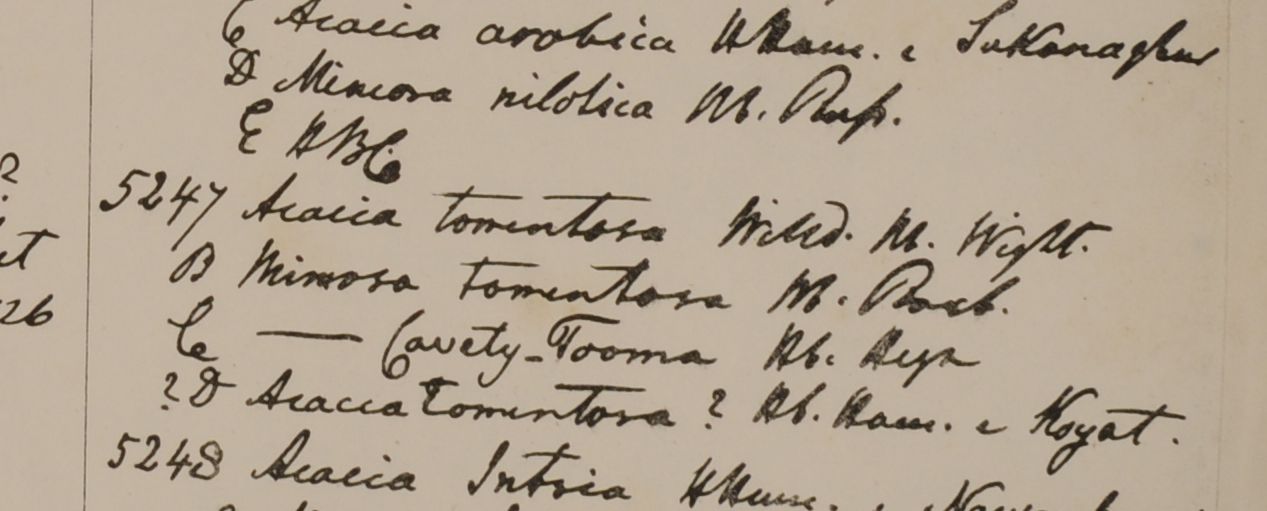 C Acacia arabica HHam. e Sukanaghur
D Mimosa nilotica Hb. Rusp.
E HBC
2
et
26
5247 Acacia tomentosa Willd. Hb. Wight.
B Mimosa tomentosa Hb. Roxb.
C — Cavety-Tooma Hb. Heyn
?D Acacia tomentosa ? Hb. Ham. e Koyat.
5248 Acacia Intsia HHam. e